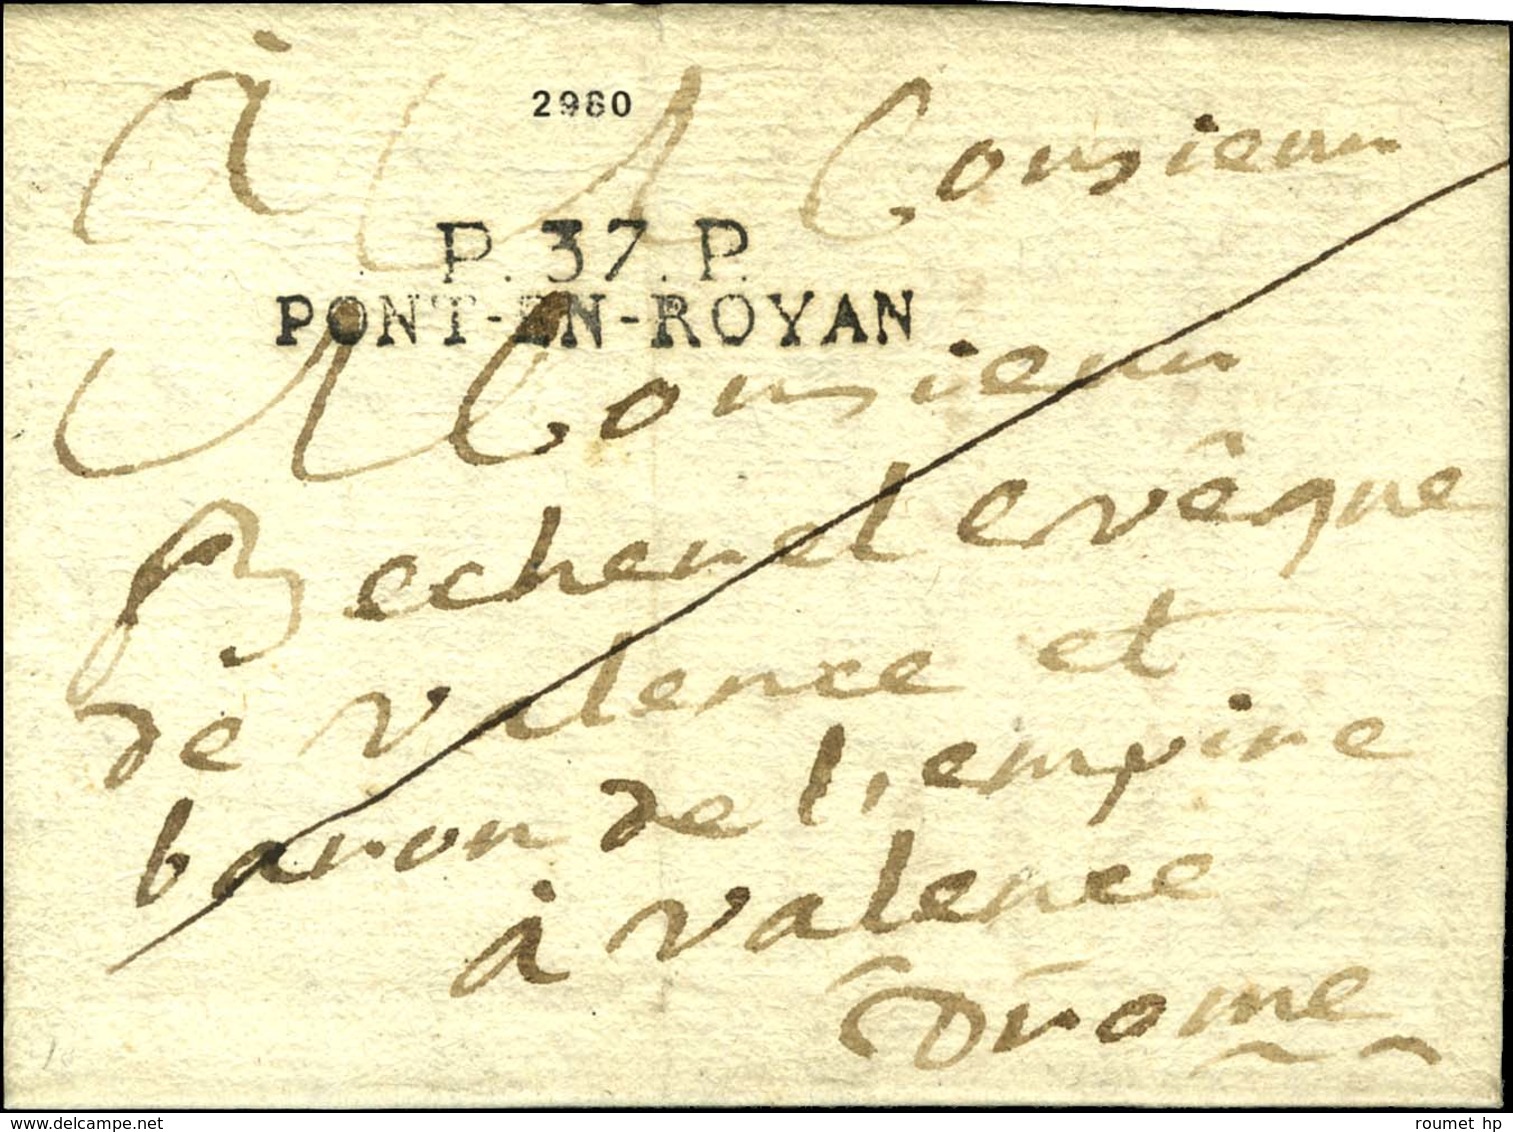 2980
à Monsieur
P. 37. P.
PONT-EN-ROYAN
Monsieur
Becherel evêque
de valence et
baron de l'empire
à valence
Drome
roumet hp